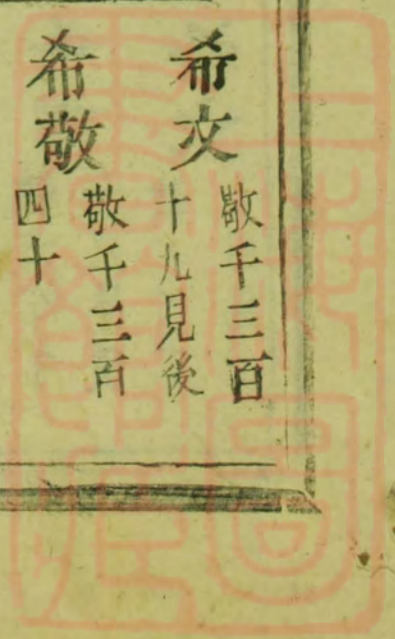 希文
敬千三百
十九見後
希敬
敬千三百
四十